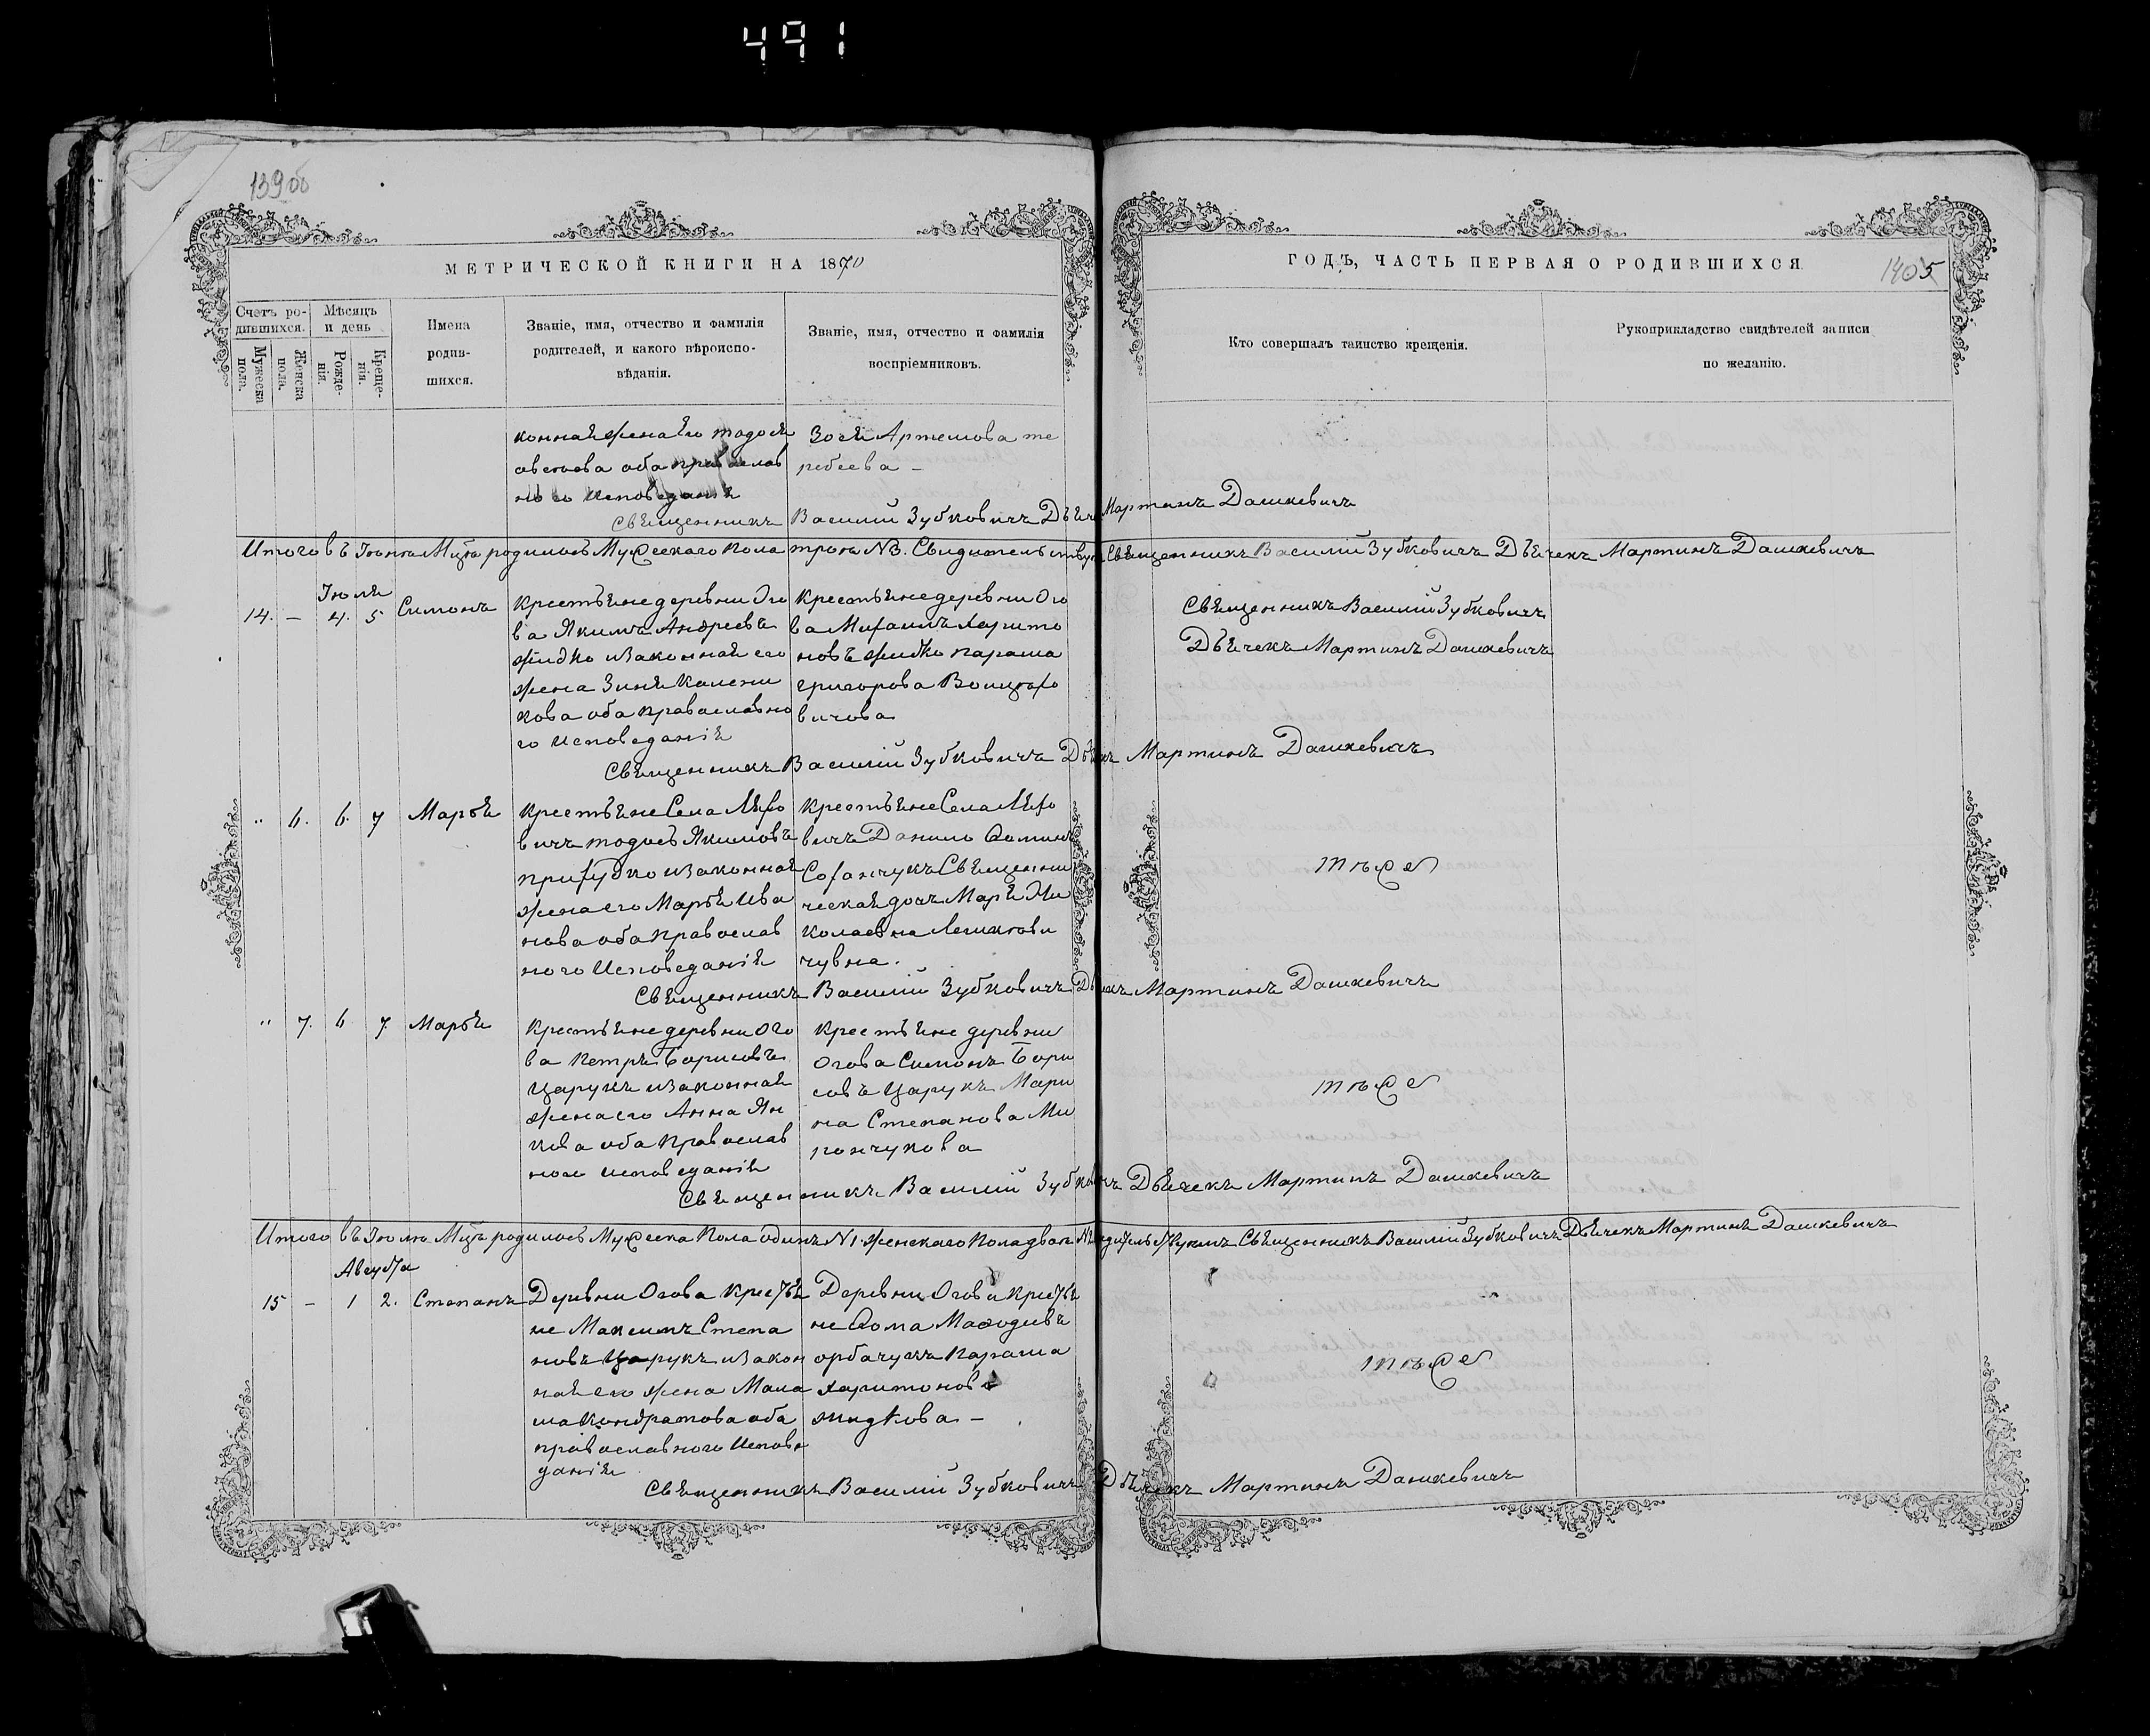 491
139об
МЕТРИЧЕСКОЙ КНИГИ НА 1870
ГОДЪ, ЧАСТЬ ПЕРВАЯ О РОДИВШИХСЯ
1405
Счетъ ро-
дившихся.
Мужеска
пола.
Женска
пола.
Мѣсяцъ
и день
Рожде-
нія.
Креще-
нія.
Имена
родив-
шихся.
Званіе, имя, отчество и фамилія
родителей, и какого вѣроиспо-
вѣданія.
Званіе, имя, отчество и фамилія
воспріемниковъ.
Кто совершалъ таинство крещенія.
Рукоприкладство свидѣтелей записи
по желанію.
коннаѣ жена Его
оба православ
но го Исповеданіѣ
Зосѣ Артемова те
ребеева -
Свѣщенникъ Василій Зубковичъ Дьѣч Мартинъ Дашкевичъ
Итого въ Іюнѣ Мцѣ родилось Мужескаго пола трои №3. Свидетельствуе Свѣщенникъ Василій Зубковичъ Дьѣчекъ Мартинъ Дашкевичъ
Іюлѣ
14. - 4. 5 Симонъ
Крестьѣне деревни Ого
ва Якимъ Андреевъ
жидко изаконнаѣ его
жена Зинѣ Калени
кова оба православно
го Исповеданіѣ
Крестьѣне деревни Ого
ва Михаилъ Харито
новъ жидко параша
григорова Войцехо
вичова
Свѣщенникъ Василій Зубковичъ
Дьѣчекъ Мартинъ Дашкевичъ
Свѣщенникъ Василій Зубковичъ Дьѣчкъ Мартинъ Дашкевичъ
" 6. 6. 7 Марьѣ
Крестьѣне Села Лѣхо
вичъ тодосъ Якимовъ
прихудко изаконнаѣ
жена его Марьѣ Ива
нова оба православ
ного Исповеданіѣ
Крестьѣне Села Лѣхо
вичъ Данило Фомин
Соханчукъ Свѣщенни
ческаѣ дочь Марѣ Ни
колаевна
чувна.
тоже
Свѣщенникъ Василій Зубковичъ Дьѣчкъ Мартинъ Дашкевичъ
" 7. 6 7. Марьѣ
Крестьѣне деревни Ого
ва Петръ Борисовъ
Царукъ изаконнаѣ
жена его Анна Ян
кова оба православ
ного исповеданіѣ
Крестьѣне деревни
Огова Симонъ Бори
совъ Царукъ Мари
на Степанова Ми
рончукова
тоже
Свѣщенникъ Василій Зубковичъ Дьѣчекъ Мартинъ Дашкевичъ
Итого въ Іюлѣ Мцѣ родилось Мужеска пола одинъ №1. женскаго пола двои Свѣщенникъ Василій Зубковичъ Дьѣчекъ Мартинъ Дашкевичъ
Августа
15 - 1 2. Степанъ
Деревни Огова Крестьѣ
не Максимъ Степа
новъ Царукъ изакон
наѣ его жена Мала
ша Кондратова оба
православного Испове
даніѣ
Деревни Огова Крестьѣ
не Фома Мафодиевъ
орбачукъ Параша
Харитонова
жидкова -
тоже
Свѣщенникъ Василій Зубковичъ Дьѣчекъ Мартинъ Дашкевичъ